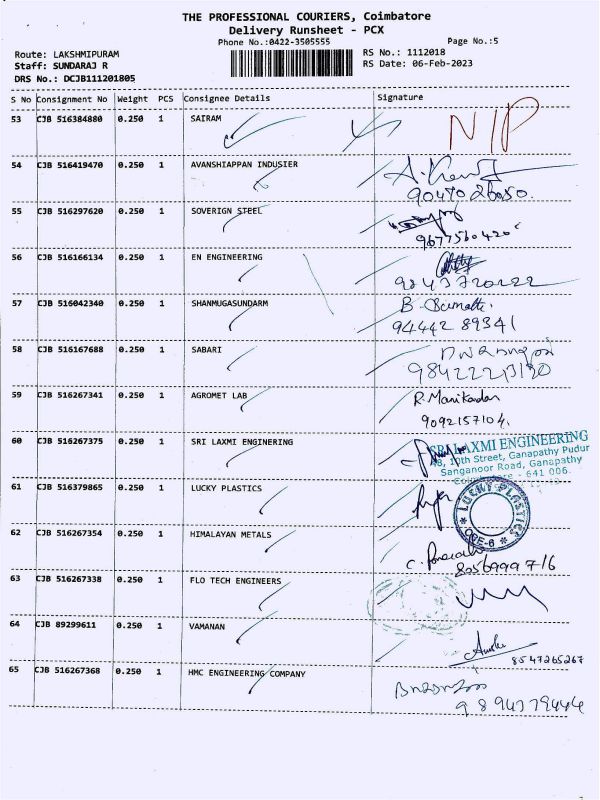 THE PROFESSIONAL COURIERS, Coimbatore
Delivery Runsheet - PCX
Phone No.:0422-3505555 Page No.:5
Route: LAKSHMIPURAM RS No.: 1112018
Staff: SUNDARAJ R RS Date: 06-Feb-2023
DRS No.: DCJB111201805
S No Consignment No Weight PCS Consignee Details Signature
53 CJB 516384880 0.250 1 SAIRAM N/P
54 CJB 516419470 0.250 1 AVANSHIAPPAN INDUSIER
55 CJB 516297620 0.250 1 SOVERIGN STEEL
9677560420
56 CJB 516166134 0.250 1 EN ENGINEERING
57 CJB 516042340 0.250 1 SHANMUGASUNDARM B.
94442 89341
58 CJB 516167688 0.250 1 SABARI
59 CJB 516267341 0.250 1 AGROMET LAB R. Manikandan
9092157104.
60 CJB 516267375 0.250 1 SRI LAXMI ENGINERING SRI LAXMI ENGINEERING
10th Street, Ganapathy Pudur
Sanganoor Road, Ganapathy
Coimbatore - 641 006.
61 CJB 516379865 0.250 1 LUCKY PLASTICS
LUCKY PLASTICS
CBE-6
62 CJB 516267354 0.250 1 HIMALAYAN METALS
8056999716
63 CJB 516267338 0.250 1 FLO TECH ENGINEERS
64 CJB 89299611 0.250 1 VAMANAN
8547265267
65 CJB 516267368 0.250 1 HMC ENGINEERING COMPANY